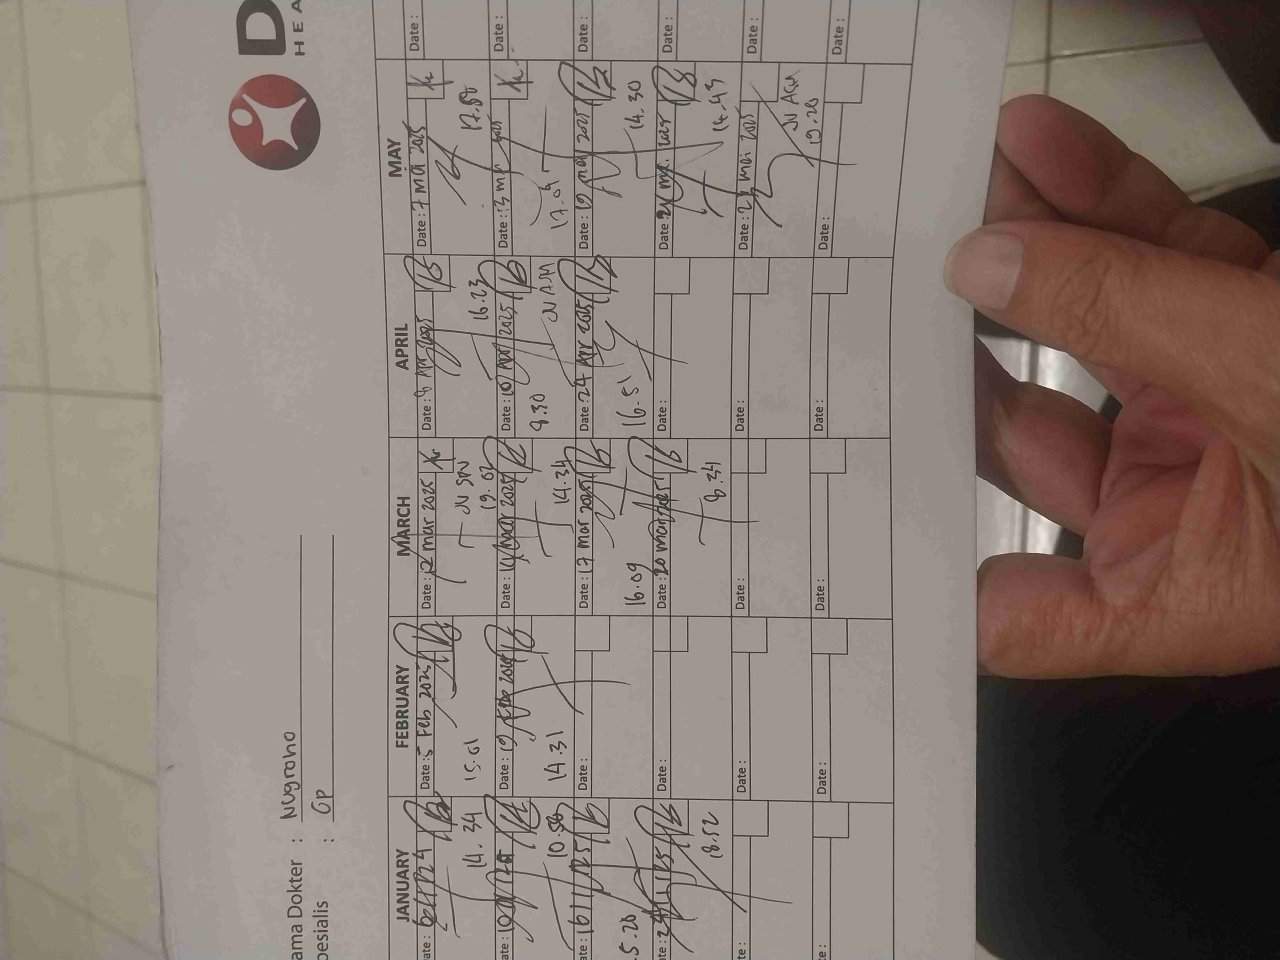 D
HEA
ama Dokter : Nugroho
pesialis : Gp
JANUARY
FEBRUARY
MARCH
APRIL
MAY
ate :
14.34
Date : 5 Feb 2025
15.01
Date : 12 mar 2025
JV SPV
19.02
Date : 8 Apr 2025
16.23
Date : 7 mei 2025
17.50
Date :
ate :
10.58
Date : 19 Feb 2025
14.31
Date : 14 mar 2025
14.34
Date : 10 Apr 2025
9.30
JV ASM
Date : 13 mei 2025
17.09
Date :
ate : 16/1/25
5.20
Date :
Date : 17 mar 2025
16.09
Date : 24 Apr 2025
16.51
Date : 19 mei 2025
14.30
Date :
ate : 24/1/25
18.52
Date :
Date : 20 mar 2025
8.34
Date :
Date : mei 2025
14.43
Date :
te :
Date :
Date :
Date :
Date : mei 2025
JV ASM
19.20
Date :
te :
Date :
Date :
Date :
Date :
Date :